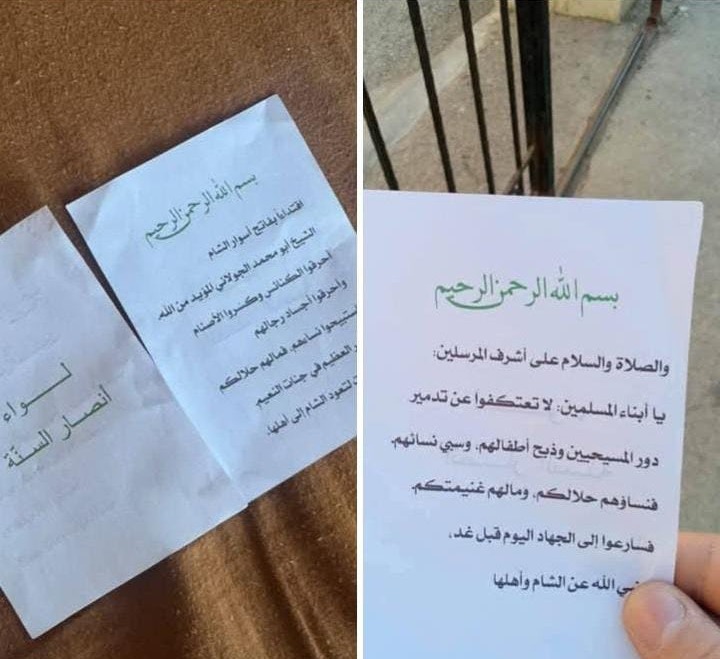 بسم الله الرحمن الرحيم
اقتداءاً بفاتح أسوار الشام
الشيخ أبو محمد الجولاني المؤيد من الله،
أحرقوا الكنائس وكسروا الأصنام
وأحرقوا أجساد رجالهم
نساءهم، فمالهم حلالكم
العظيم في جنات النعيم
لتعود الشام إلى أهلها.
لواء
أنصار السنّة
بسم الله الرحمن الرحيم
والصلاة والسلام على أشرف المرسلين:
يا أبناء المسلمين: لا تعتكفوا عن تدمير
دور المسيحيين وذبح أطفالهم، وسبي نسائهم.
فنساؤهم حلالكم، ومالهم غنيمتكم.
فسارعوا إلى الجهاد اليوم قبل غد،
الله عن الشام وأهلها